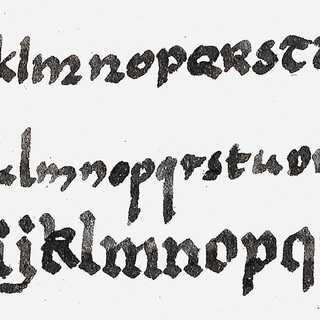 klmnopqrst
klmnopqrstuv
ijklmnopq